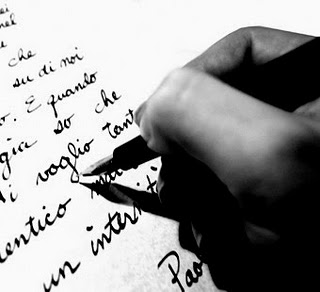 che
su di noi
o. E quando
gica so che
ti voglio tant
entico
un intersti
Pao